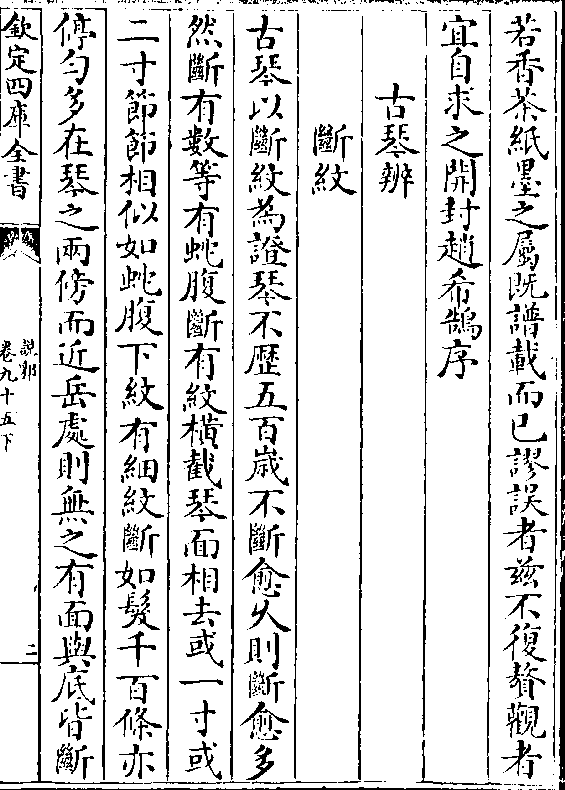 若香茶紙墨之屬既譜載而已謬誤者兹不復贅觀者
宜自求之開封趙希鵠序
古琴辨
斷紋
古琴以斷紋為證琴不歴五百歲不斷愈久則斷愈多
然斷有數等有虵腹斷有紋橫截琴面相去或一寸或
二寸節節相似如虵腹下紋有細紋斷如髮千百條亦
停勻多在琴之兩傍而近岳處則無之有面與底皆斷
欽定四庫全書
說郛
卷九十五下
二